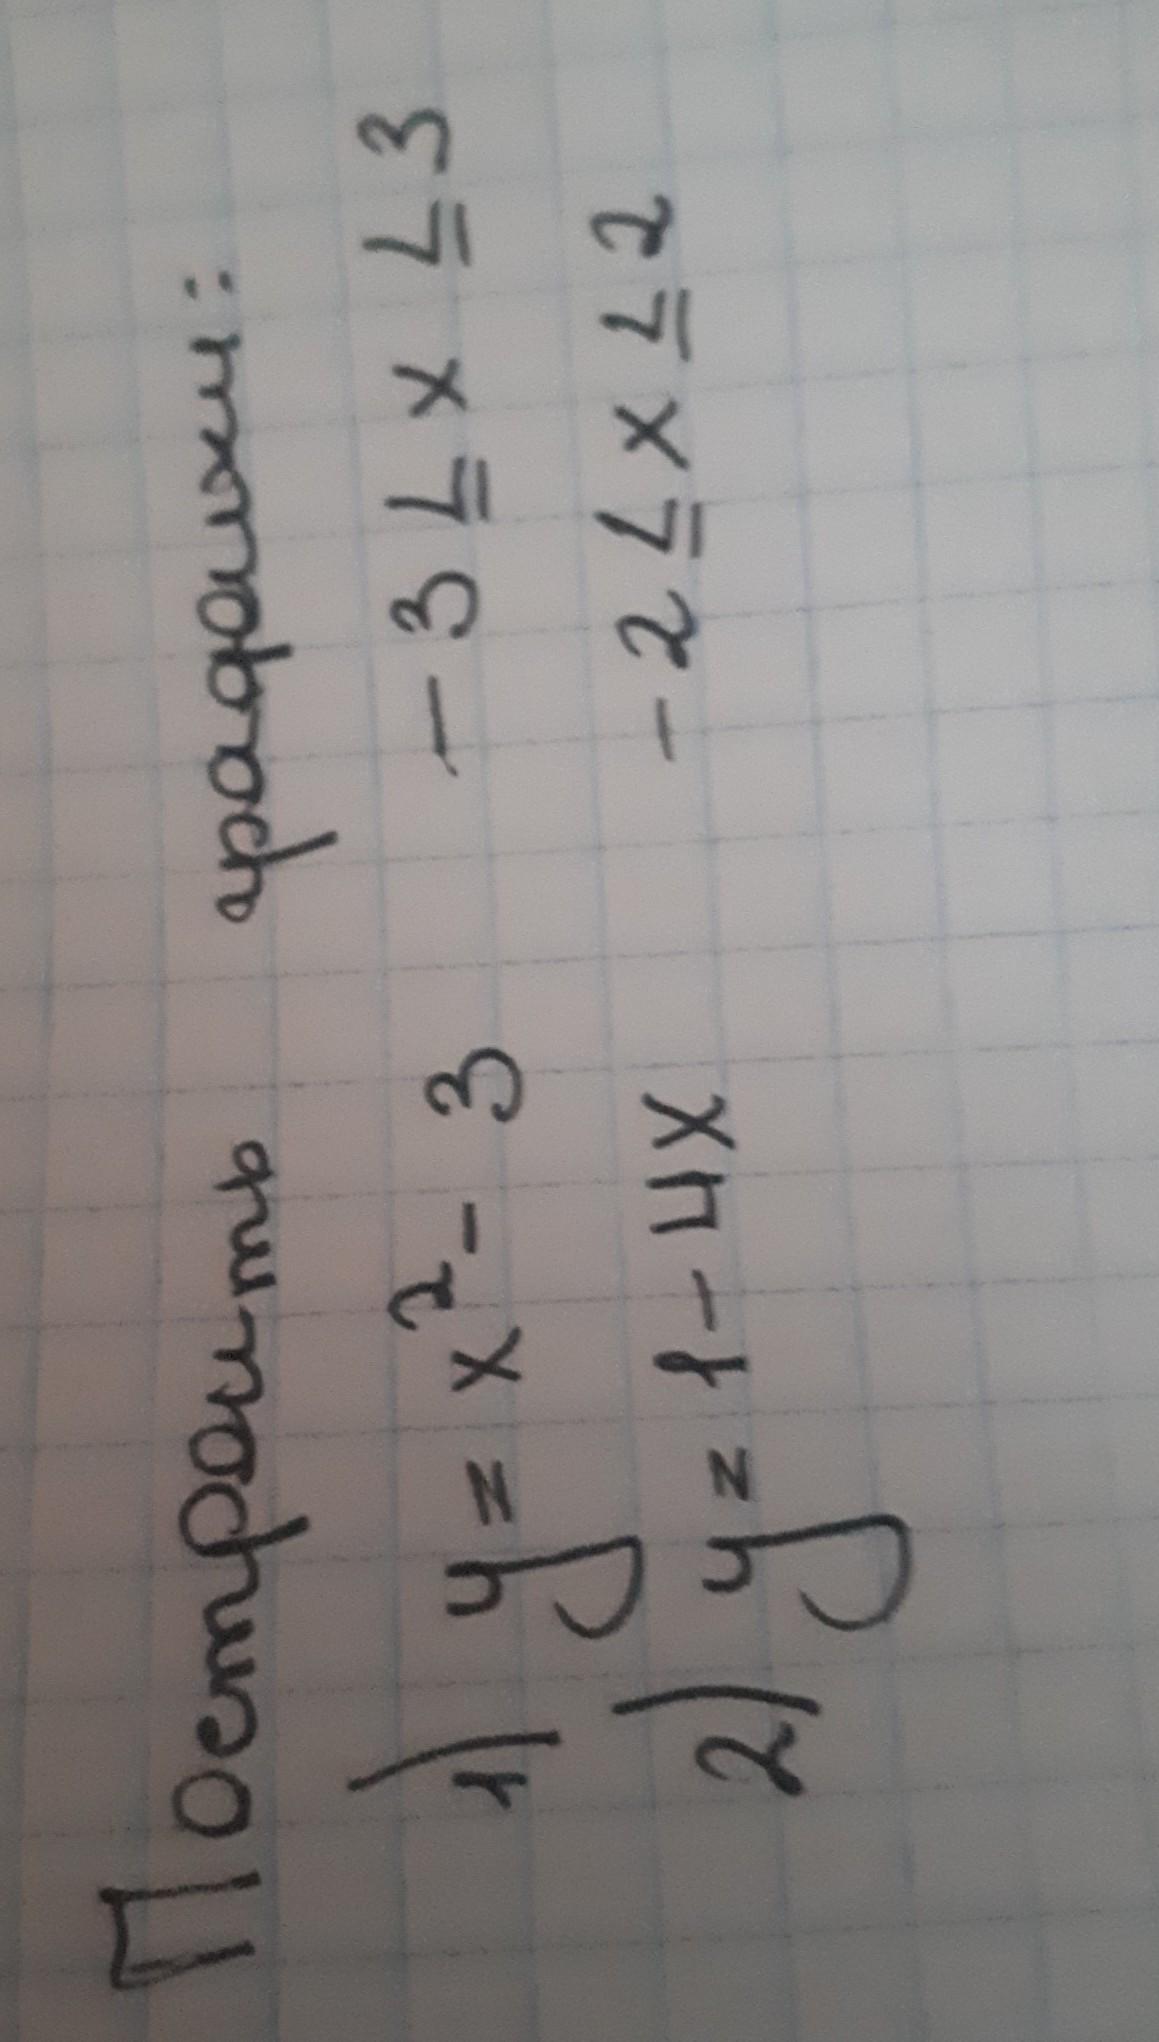 Построить графики:
1) y = x² - 3 - 3 ≤ x ≤ 3
2) y = 1 - 4x - 2 ≤ x ≤ 2